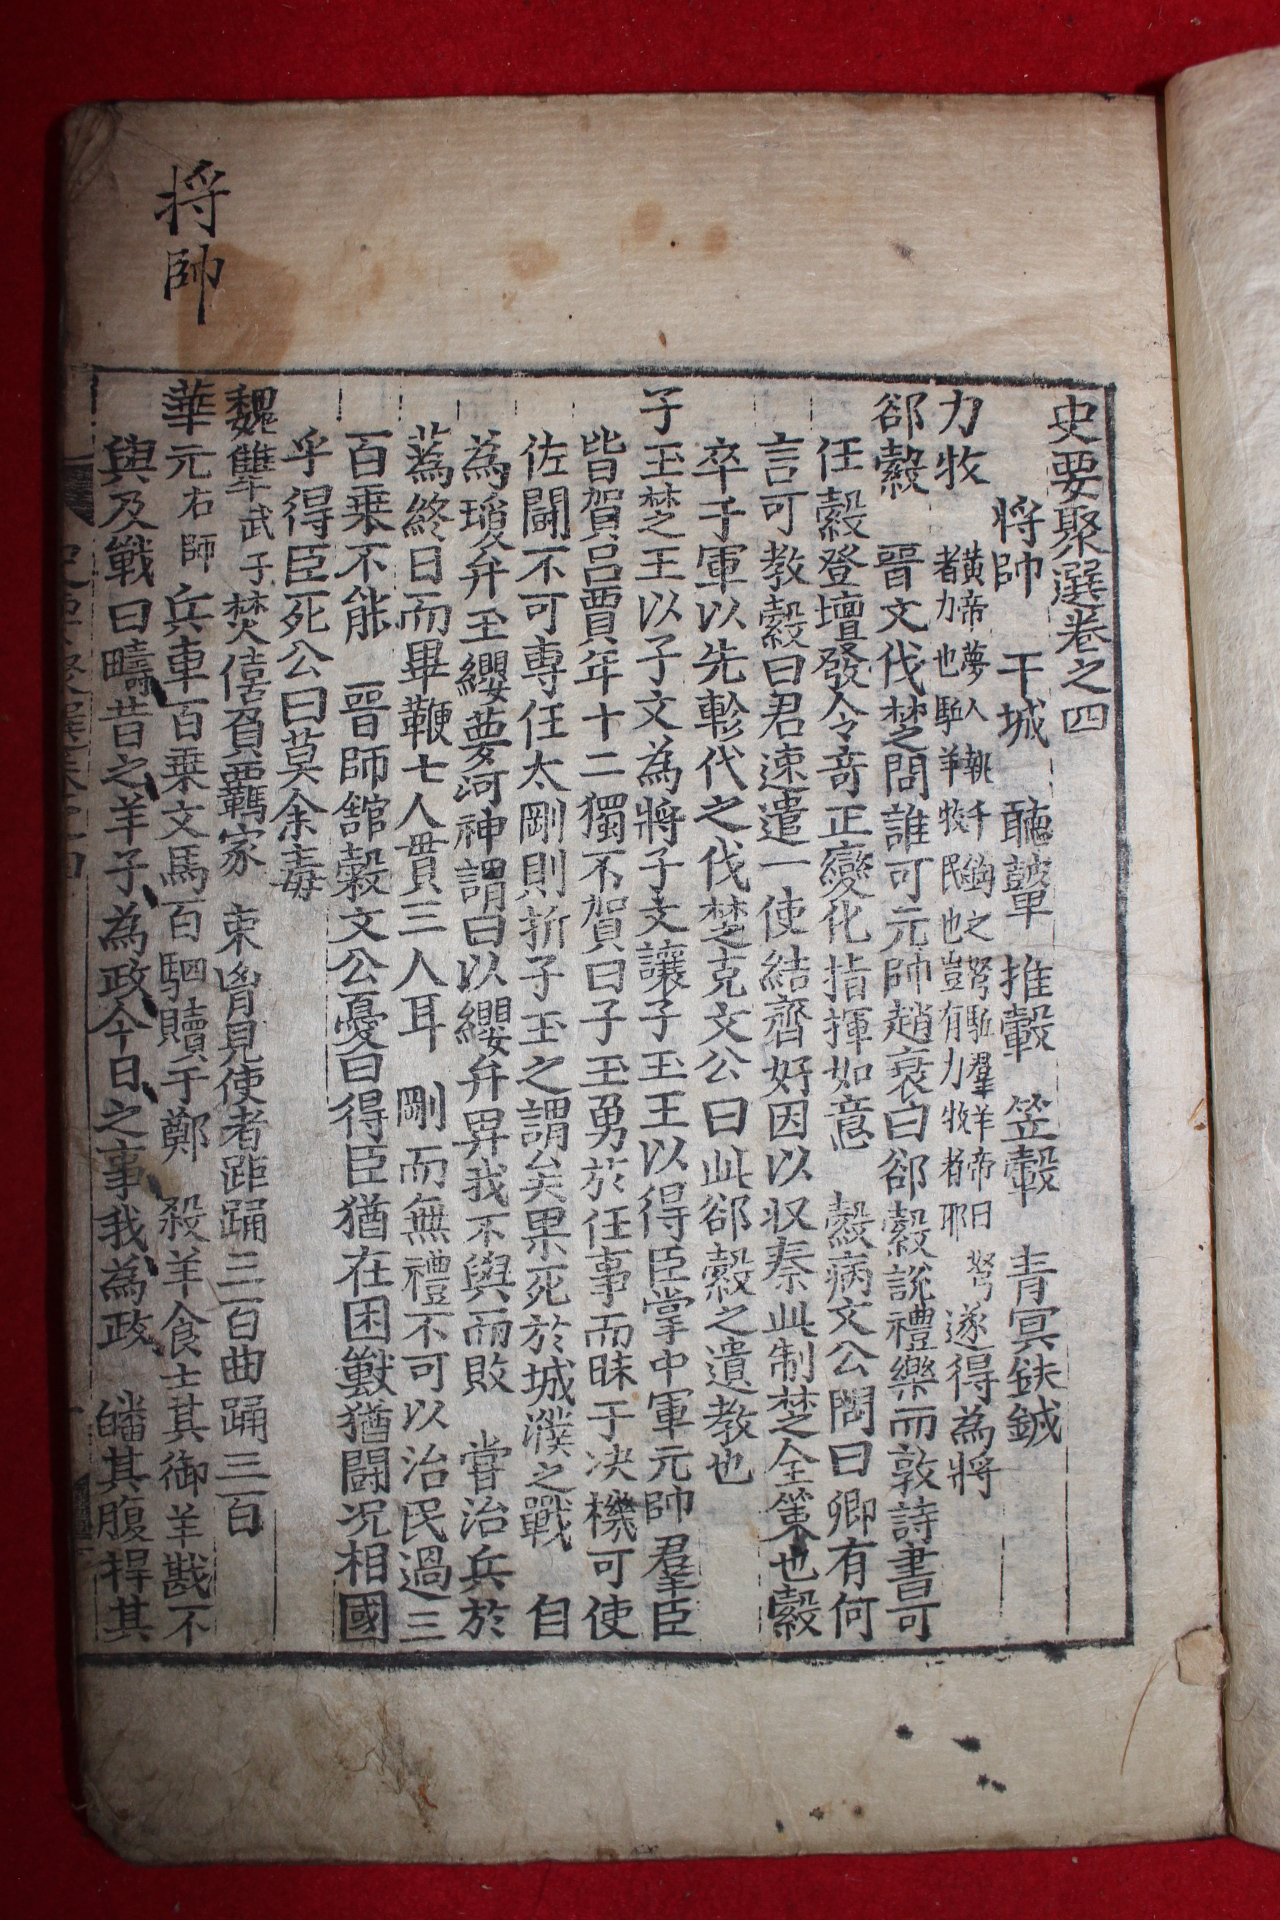 史要聚選卷之四
將帥　干城　聽鼙　推轂　笠轂　青冥鈇鉞
力牧　黃帝夢人執千鈞之弩駈羣羊帝曰弩
者力也駈羊牧民也豈有力牧者耶　遂得為將
郤縠　晉文伐楚問誰可元帥趙衰曰郤縠說禮樂而敦詩書可
任縠登壇發令奇正變化指揮如意　縠病文公問曰卿有何
言可教縠曰君速遣一使結齊好因以収秦此制楚全策也縠
卒于軍以先軫代之伐楚克文公曰此郤縠之遺教也
子玉楚王以子文為將子文讓子玉王以得臣掌中軍元帥羣臣
皆賀呂賈年十二獨不賀曰子玉勇於任事而昧于决機可使
佐鬪不可專任太剛則折子玉之謂矣果死於城濮之戰　自
為瓊弁玉纓夢河神謂曰以纓弁畀我不與而敗　嘗治兵於
蔿終日而畢鞭七人貫三人耳　剛而無禮不可以治民過三
百乗不能　晉師舘榖文公憂曰得臣猶在困獸猶鬪况相國
乎得臣死公曰莫余毒
魏犨武子焚僖負羈家　束胷見使者距踊三百曲踊三百
華元右師　兵車百乗文馬百駟贖于鄭　殺羊食士其御羊斟不
與及戰曰疇昔之羊子為政今日之事我為政　皤其腹捍其
將帥
史要聚選卷之四